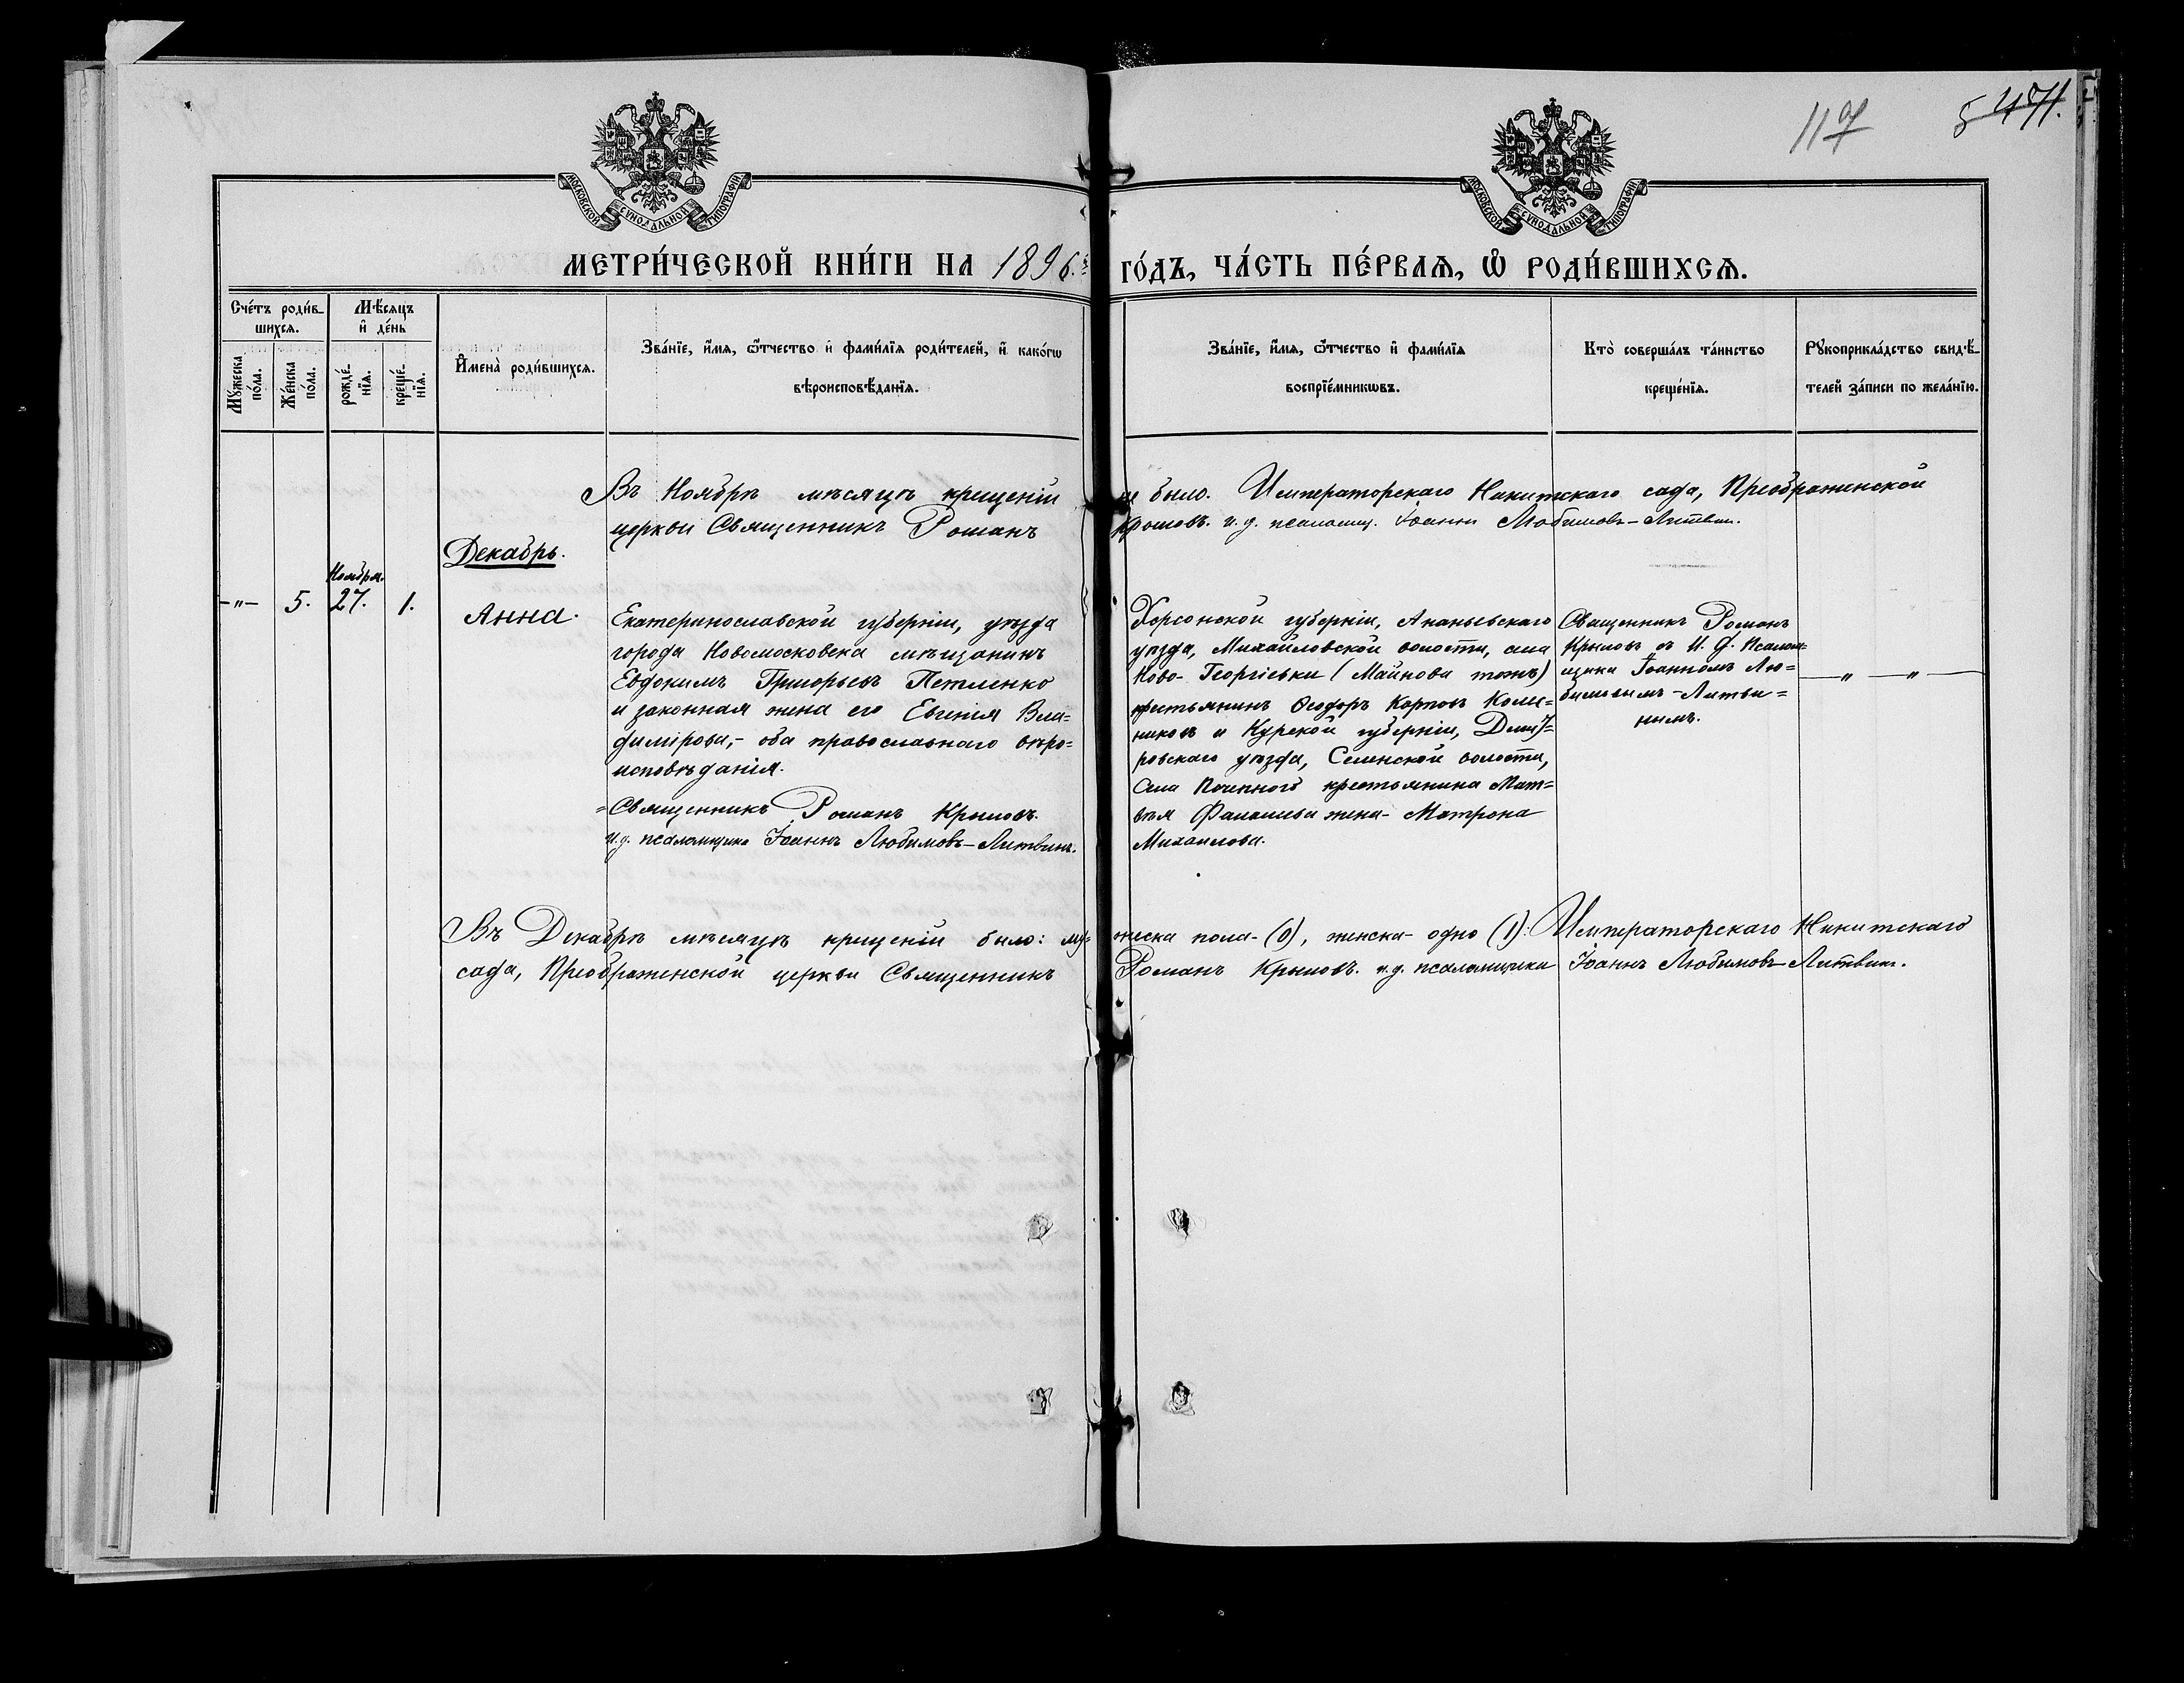 117
471.
МОСКОВСКОЙ СУНОДАЛЬНОЙ ТИПОГРАФІИ
МОСКОВСКОЙ СУНОДАЛЬНОЙ ТИПОГРАФІИ
МЕТРИ́ЧЕСКОЙ КНИ́ГИ НА 1896.й ГО́ДЪ, ЧА́СТЬ ПЕ́РВАѦ, Ѽ РОДИ́ВШИХСѦ.
Сче́тъ роди́в-
шихсѧ.
Мꙋжеска по́ла.
Же́нска по́ла.
Мѣ́сѧцъ
и҆ де́нь
рожде́нїѧ.
креще́нїѧ.
И҆мена̀ роди́вшихсѧ.
Зва́нїе, и҆́мѧ, ѻ҆́тчество и҆ фами́лїѧ роди́телей, и҆ како́гѡ
вѣроисповѣ́данїѧ.
Зва́нїе, и҆́мѧ, ѻ҆́тчество и҆ фами́лїѧ
воспрїе́мникѡвъ.
Кто̀ соверша́лъ та́инство
креще́нїѧ.
Рꙋкоприкла́дство свидѣ́-
телей за́писи по жела́нїю.
Въ Ноябрѣ мѣсяцѣ крещеній не было. Императорскаго Никитскаго сада, Преображенской
церкви Священникъ Романъ Крыловъ. и. д. псаломщ. Іоаннъ Любимовъ-Литвин.
Декабрь.
Ноября.
-"- 5. 27. 1. Анна.
Екатеринославской губерніи, уѣзда
города Новомосковска мѣщанинъ
Евдокимъ Григорьевъ Петленко
и законная жена его Евгенія Вла=
димірова,- оба православнаго вѣро=
исповѣданія.
=Священникъ Романъ Крыловъ.
И. д. псаломщика Іоаннъ Любимовъ-Литвинъ.
Херсонской губерніи, Ананьевскаго
уѣзда, Михайловской волости, села
Ново-Георгіевки (Майнова тожъ)
крестьянинъ Ѳеодоръ Карповъ
и Курской губерніи, Дмит=
ровскаго уѣзда, волости,
села крестьянина Мат=
вѣя жена- Матрона
Михаилова.
Священникъ Романъ
Крыловъ съ И. д. Псалом=
щика Іоанномъ Лю=
бимовымъ-Литви=
нымъ.
— " — " —
Въ Декабрѣ мѣсяцѣ крещеній было: му=жеска пола-(0), женска-одно (1). Императорскаго Никитскаго
сада, Преображенской церкви Священникъ Романъ Крыловъ. и. д. псаломщика Іоаннъ Любимовъ-Литвин.